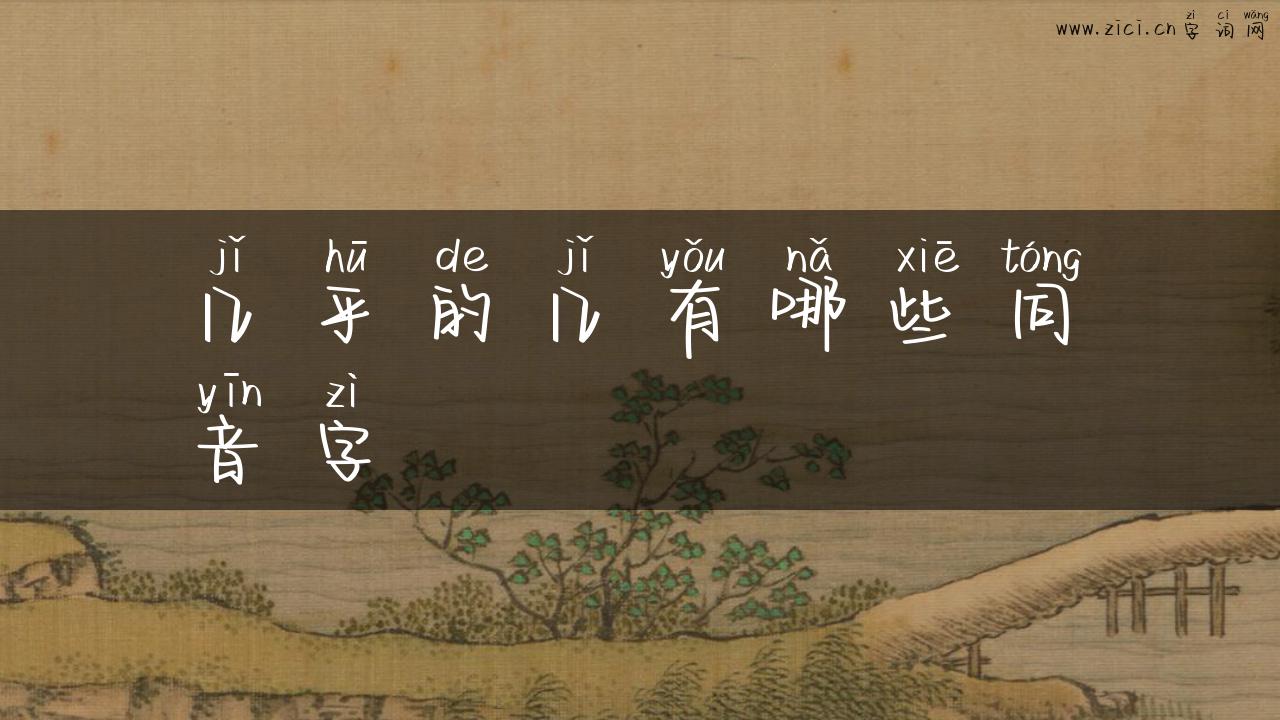 zì cí wǎng
www.zici.cn 字 词 网
jǐ hū de jǐ yǒu nǎ xiē tóng
几 乎 的 几 有 哪 些 同
yīn zì
音 字